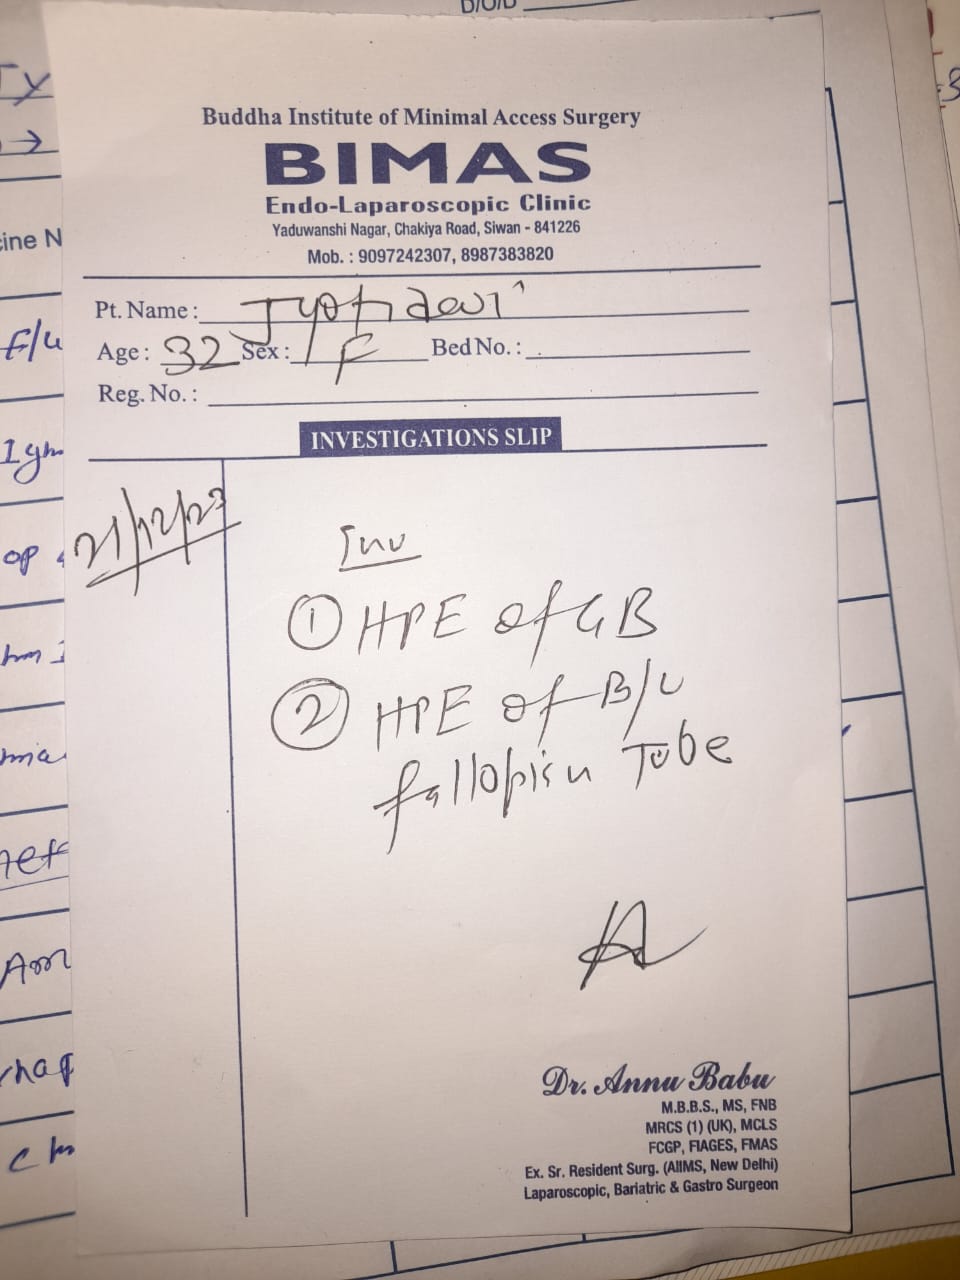 D/O/D
Buddha Institute of Minimal Access Surgery
BIMAS
Endo-Laparoscopic Clinic
Yaduwanshi Nagar, Chakiya Road, Siwan - 841226
Mob. : 9097242307, 8987383820
Pt. Name : Jyoti devi
Age : 32 Sex : / F Bed No. :
Reg. No. :
INVESTIGATIONS SLIP
21/12/23
Inv
① HPE of GB
② HPE of B/L
fallopian Tube
Dr. Annu Babu
M.B.B.S., MS, FNB
MRCS (1) (UK), MCLS
FCGP, FIAGES, FMAS
Ex. Sr. Resident Surg. (AIIMS, New Delhi)
Laparoscopic, Bariatric & Gastro Surgeon
cine N
F/U
1gm
op